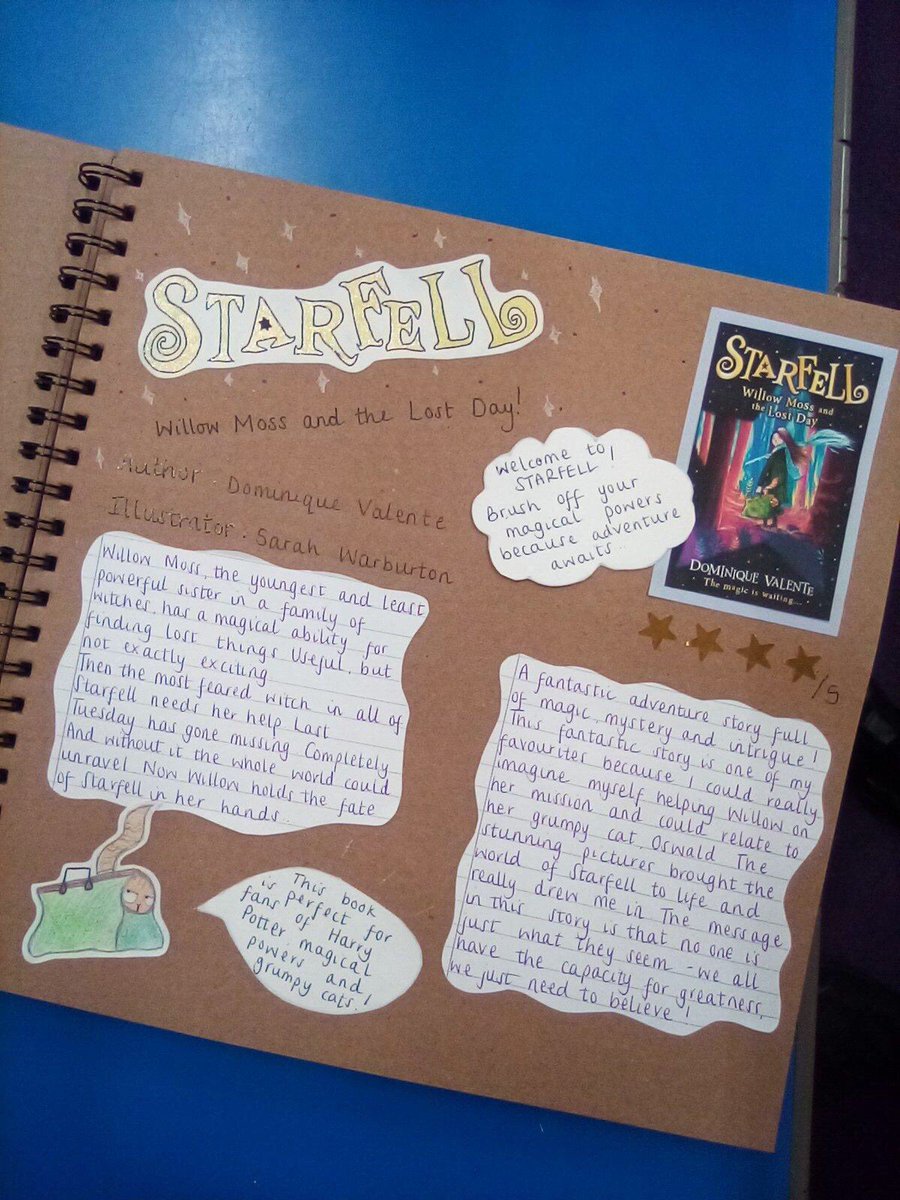 STARFELL
Willow Moss and the Lost Day!
Author Dominique Valente
Illustrator · Sarah Warburton
Welcome to
STARFELL!
Brush off your
magical powers
because adventure
awaits...
STARFELL
Willow Moss and
the Lost Day
DOMINIQUE VALENTE
The magic is waiting...
/5
Willow Moss, the youngest and least
powerful sister in a family of
witches, has a magical ability for
finding lost things. Useful, but
not exactly exciting
Then the most feared witch in all of
Starfell needs her help. Last
Tuesday has gone missing. Completely.
And without it the whole world could
unravel. Now Willow holds the fate
of Starfell in her hands...
This book
is perfect for
fans of Harry
Potter magical
powers and
grumpy cats!
A fantastic adventure story full
of magic, mystery and intrigue!
This fantastic story is one of my
favourites because I could really
imagine myself helping Willow on
her mission and could relate to
her grumpy cat, Oswald. The
stunning pictures brought the
world of Starfell to life and
really drew me in. The message
in this story is that no one is
just what they seem - we all
have the capacity for greatness,
we just need to believe!